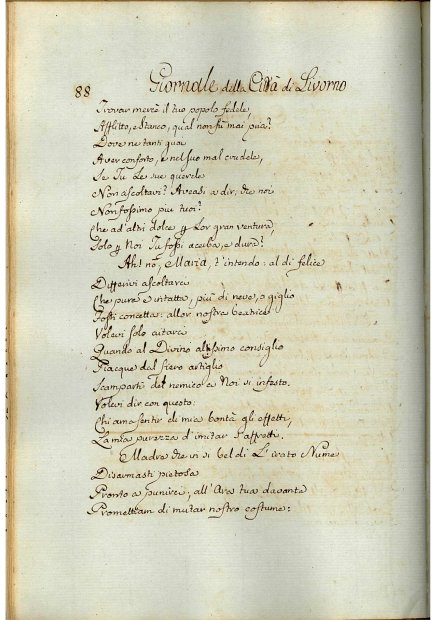 88
Giornale della Città di Livorno
Trovar mercè il tuo popolo fedele,
Afflitto, e stanco, qual non fù mai pria?
Dove ne tanti guai
Aver conforto, e nel suo mal crudele,
Se Tu le sue querele
Non ascoltavi? Aveasi a dir, che noi
Non fossimo piu tuoi?
Che ad altri dolce p lor gran ventura,
Solo p Noi Tu fossi acerba, e dura?
Ah! no, Maria, t'intendo: al di felice
Differivi ascoltarci
Che pura e intatta, più di neve, o giglio
Fosti concetta: allor nostra beatrice
Volevi solo aitarci
Quando al Divino altissimo consiglio
Piacque dal fiero artiglio
Scamparti del nemico a Noi sì infesto.
Volevi dir con questo:
Chi ama sentir di mia bontà gli effetti,
La mia purezza d'imitar s'affretti.
Madre che in sì bel di L'irato Nume
Disarmasti pietosa
Pronto a punirci, all'Ara tua davante
Promettiam di mutar nostro costume: